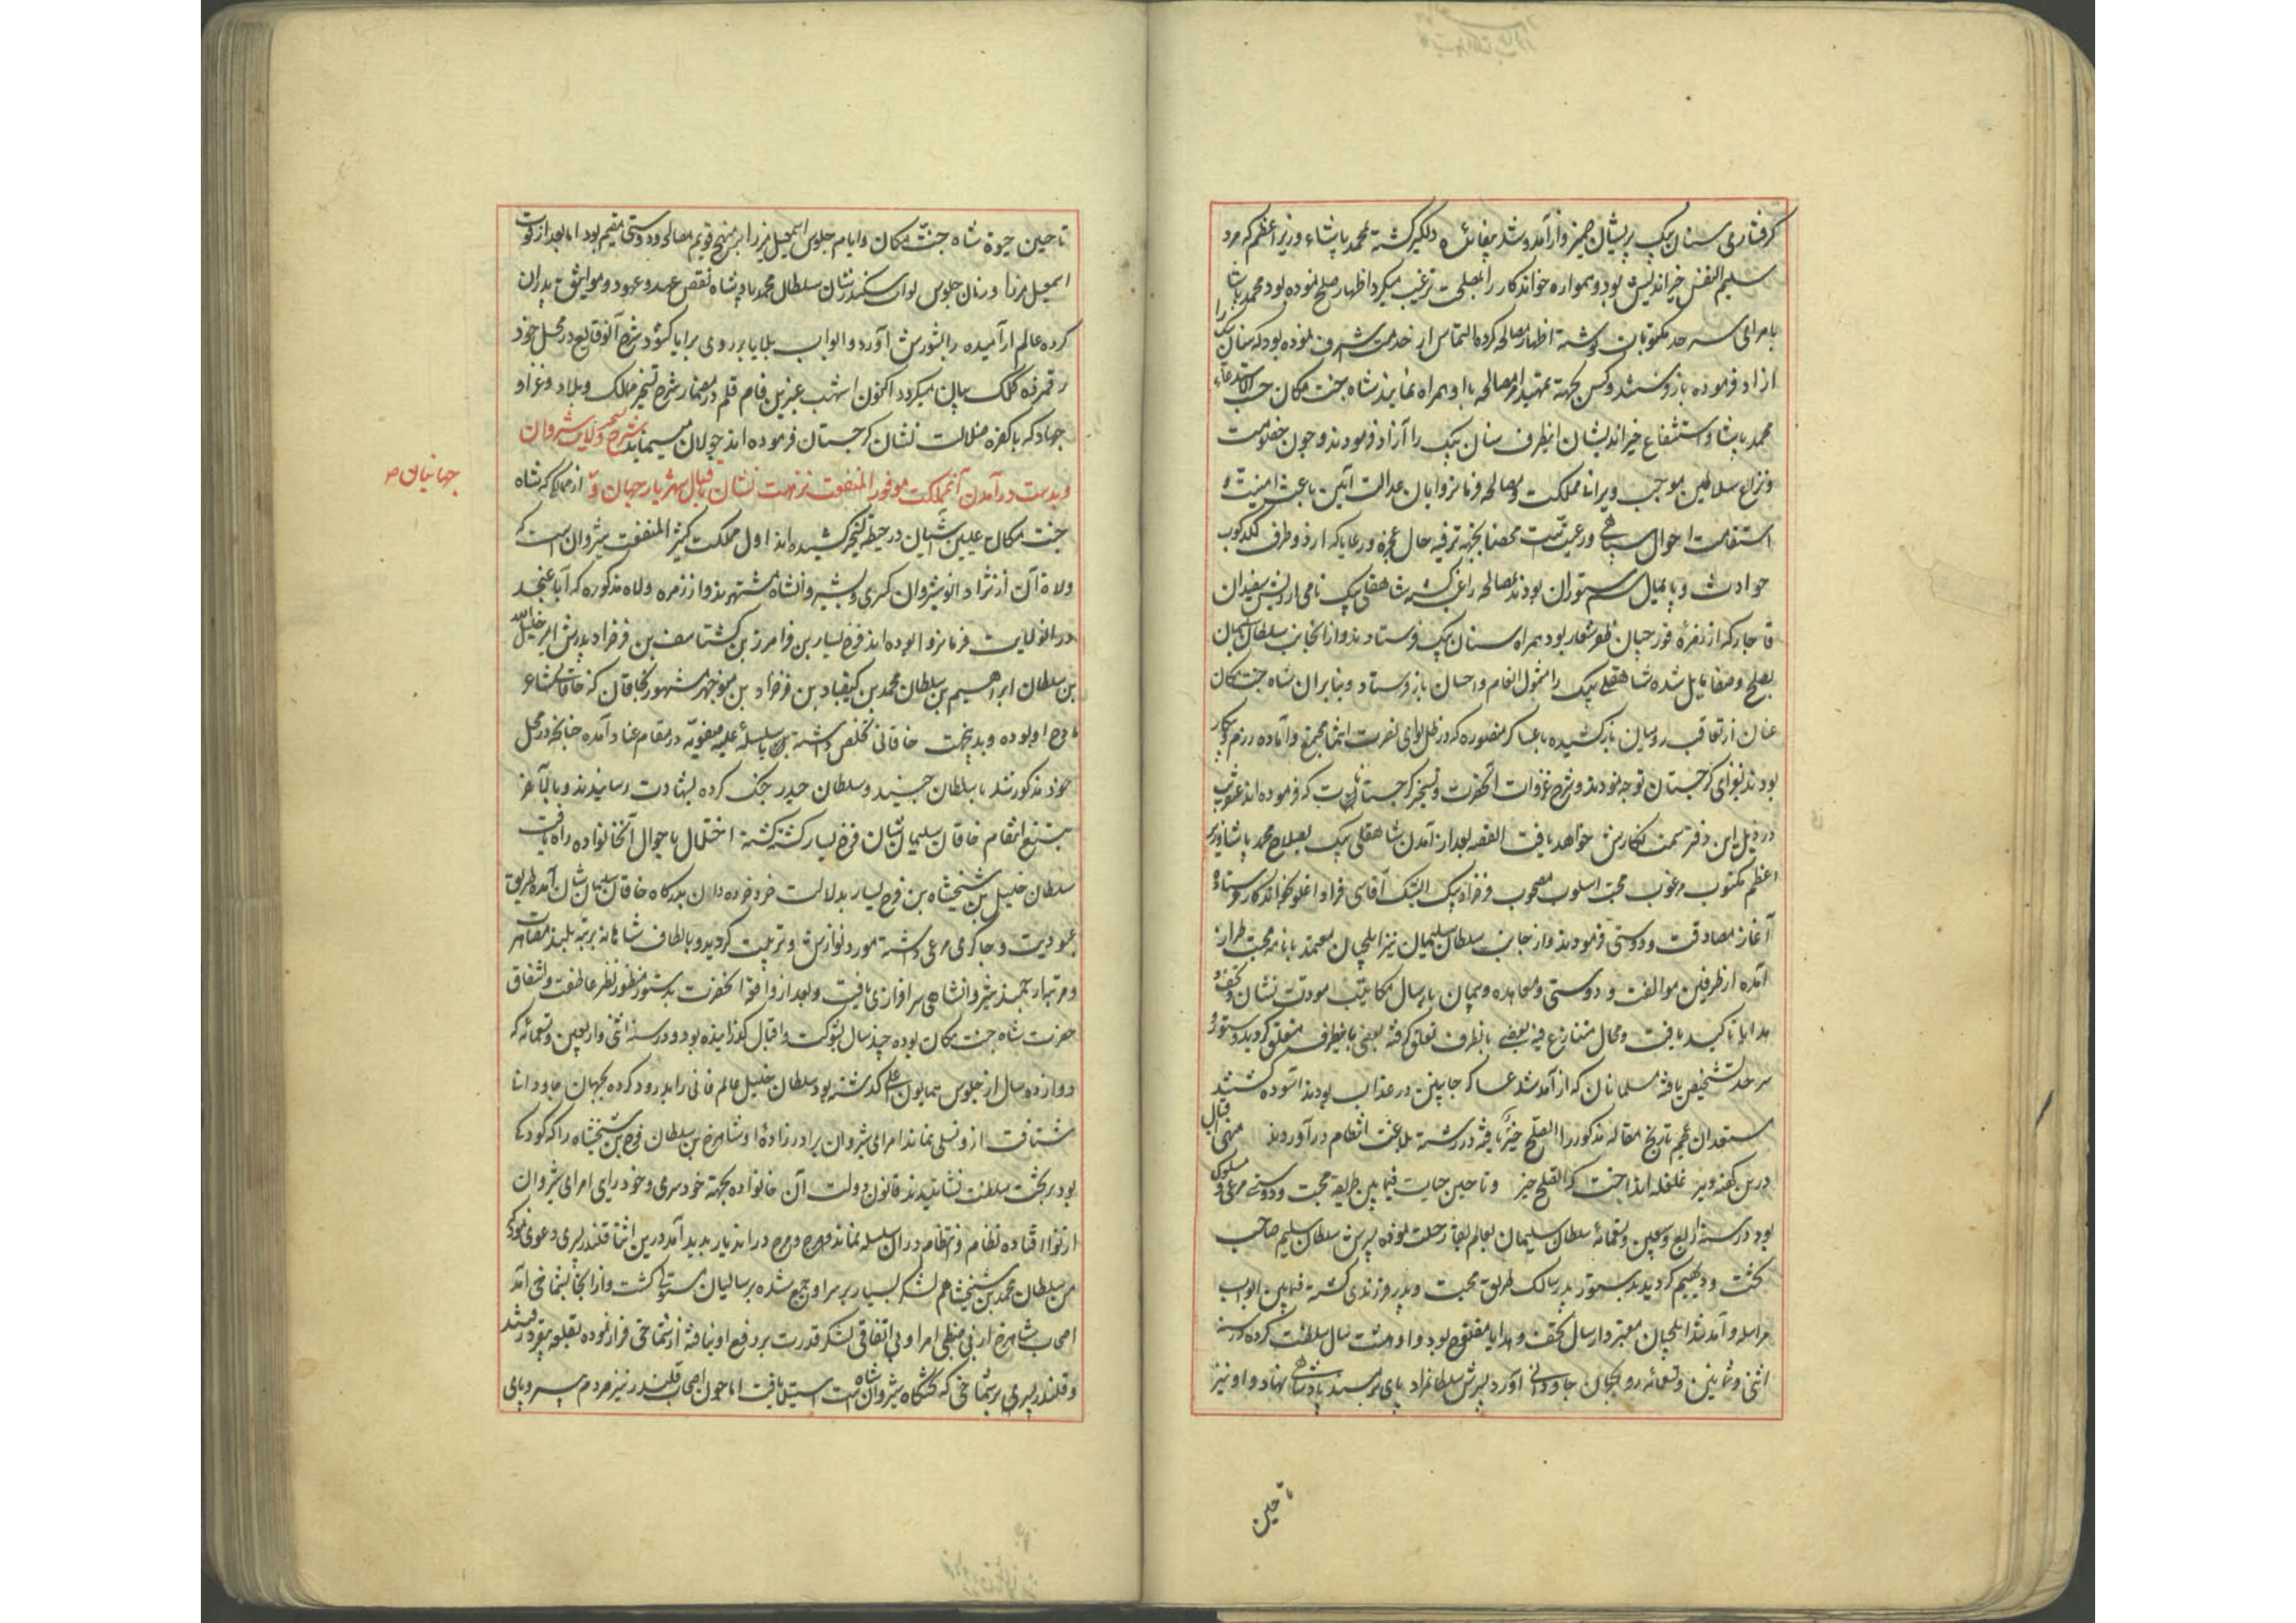 گرفتاری سنان بیک پریشان ضمیر و از آمد و شد بیفایده دلگیر گشته محمد پاشاء وزیر اعظم که مرد
سلیم النفس خیراندیش بود و همواره خواندگار را بصلح ترغیب میکرد اظهار صلح نموده بود محمد پاشا
بامرای سرحد مکتوبات نوشته اظهار مصالحه کرده التماس از خدمت اشرف نموده بود که سنان بیک را
آزاد فرموده باز فرستند و کس بجهة تمهید امر مصالحه با او همراه نمایند شاه جنت مکان حسب الاستدعاء
محمد پاشا و استشفاع خیراندیشان اینطرف سنان بیک را آزاد فرمودند و چون خصومت
و نزاع سلاطین موجب ویرانی مملکت و مصالحه فرمانروایان عدالت آیین باعث امنیت و
استقامت احوال سپاهی و رعیت است محضا بجهة ترفیه حال عجزه و رعایا که از دو طرف لگدکوب
حوادث و پایمال سم ستوران بودند بمصالحه راغب گشته شاهقلی بیک نامی از ریش سفیدان
قاجار که از زمره قورچیان ظفر شعار بود همراه سنان بیک فرستادند و از آنجانب سلطان سلیمان
بصلح و صفا مایل شده شاهقلی بیک را مشمول انعام و احسان باز فرستاد و بنابر آن شاه جنت مکان
عنان از تعاقب رومیان باز کشیده با عساکر منصوره که در ظل لوای نصرت انتما مجتمع و آماده رزم و پیکار
بودند بغزای گرجستان توجه نمودند و شرح غزوات آنحضرت و تسخیر گرجستان که فرموده اند عنقریب
در ذیل این دفتر سمت نگارش خواهد یافت القصه بعد از آمدن شاهقلی بیک بصلاح محمد پاشا وزیر
اعظم مکتوب مرغوب محبت اسلوب مصحوب فرخزاد بیک ایشیک آقاسی قراداغلو بخواندگار فرستاده
آغاز مصادقت و دوستی فرمودند و از جانب سلطان سلیمان نیز ایلچیان معتمد با نامه محبت طراز
آمده از طرفین موالفت و دوستی و معاهده و پیمان بارسال مکاتیب مودت نشان و تحف و
هدایا تاکید یافت و محال متنازع فیه بعضی بانطرف تعلق گرفته بعضی باینطرف متعلق گردید و ستور و
سرحد تشخیص یافته مسلمانان که از آمد شد عساکر جانبین در عذاب بودند آسوده گشتند
مستعدان عجم تاریخ مقاله مذکور را الصلح خیر یافته در رشته بلاغت انتظام درآوردند منهی اقبال
درین کهنه دیر غلغله انداخت که الصلح خیر و تا حین حیات فیمابین طریقه محبت و دوستی مرعی و مسلوک
بود در سنه اربع و سبعین و تسعمائه سلطان سلیمان بعالم بقا رحلت نموده پسرش سلطان سلیم صاحب
تخت و دیهیم گردید بدستور پدر سالک طریق محبت و پدر فرزندی گشته فیمابین ابواب
مراسله و آمد شد ایلچیان معتبر و ارسال تحف و هدایا مفتوح بود و او هشت سال سلطنت کرده در سنه
اثنی و ثمانین و تسعمائه رو بجهان جاودانی آورد پسرش سلطان مراد پای بر مسند پادشاهی نهاد و او نیز
تا حین
تا حین حیوة شاه جنت مکان و ایام جلوس اسمعیل میرزا بر منهج قویم مصالحه و دوستی مقیم بود اما بعد از فوت
اسمعیل میرزا و زمان جلوس نواب سکندر شان سلطان محمد پادشاه نقض عهد و عهود و مواثیق پدران
کرده عالم آرمیده را بشورش آورد و ابواب بلایا بر روی برایا گشود و شرح آنوقایع در محل خود
رقمزده کلک بیان میگردد اکنون اشهب عنبرین فام قلم در مضمار شرح تسخیر ممالک و بلاد و غزا و
جهاد که با کفره ضلالت نشان گرجستان فرموده اند جولان مینماید شرح تسخیر ولایت شیروان
و بدست در آمدن آنمملکت موفور المنفعت نزهت نشان باقبال شهریار جهان و جهانیان از ممالکی که شاه
جنت مکان علیین آشیان در حیطه تسخیر کشیده اند اول مملکت کثیر المنفعت شیروان است که
ولاة آن از نژاد انوشیروان کسری و بشیروانشاه مشتهرند و از زمره ولاه مذکوره که آبا عنجد
در انولایت فرمانروا بوده اند فرخ یسار بن فرامرز بن گشتاسف بن فرخزاد پدرش امیر خلیل الله
بن سلطان ابراهیم بن سلطان محمد بن کیقباد بن فرخزاد بن منوچهر مشهور بخاقان که خاقانی شاعر
مادح او بوده و بدینجهت خاقانی تخلص داشته با سلسله علیه صفویه در مقام عناد آمده چنانچه در محل
خود مذکور شد با سلطان جنید و سلطان حیدر جنگ کرده بشهادت رسانیدند و بالآخر
بتیغ انتقام خاقان سلیمان شان فرخ یسار کشته گشته اختلال باحوال آنخانواده راه یافت
سلطان خلیل بن شیخشاه بن فرخ یسار بدلالت خرد خرده دان بدرگاه خاقان سلیمان شان آمده طریق
عبودیت و چاکری مرعی داشته مورد نوازش و تربیت گردید و بالطاف شاهانه برتبه بلند مصاهرت
و مرتبه ارجمند شیروانشاهی سرافرازی یافت و بعد از واقعه آنحضرت بدستور منظور نظر عاطفت و اشفاق
حضرت شاه جنت مکان بوده چند سال بشوکت و اقبال گذرانیده بود و در سنه اثنی و اربعین و تسعمائه که
دوازده سال از جلوس همایون اعلی گذشته بود سلطان خلیل عالم فانی را بدرود کرده بجهان جاودانی
شتافت از و نسلی نماند امرای شیروان برادر زاده او شاهرخ بن سلطان فرخ بن شیخشاه را که کودک
بود بر تخت سلطنت نشانیدند قانون دولت آن خانواده بجهة خودسری و خودرایی امرای شیروان
از نوا افتاده نظام و انتظام در آن سلسله نماند و هرج و مرج در اندیار پدید آمد درین اثنا قلندر پسری دعوی نمود که
من سلطان محمد بن شیخشاهم لشکر بسیار بر سر او جمع شده بر سالیان مستولی گشت و از انجا بشماخی آمد
اصحاب شاهرخ از بی ضبطی امرا و بی اتفاقی لشکر قدرت بر دفع او نیافته از شماخی فرار نموده بقلعه بیقرد رفتند
و قلندر پسر بر شماخی که تختگاه شیروان شاه است استیلا یافت اما چون اصحاب قلندر نیز مردم بی سر و پای
جهانیان ص